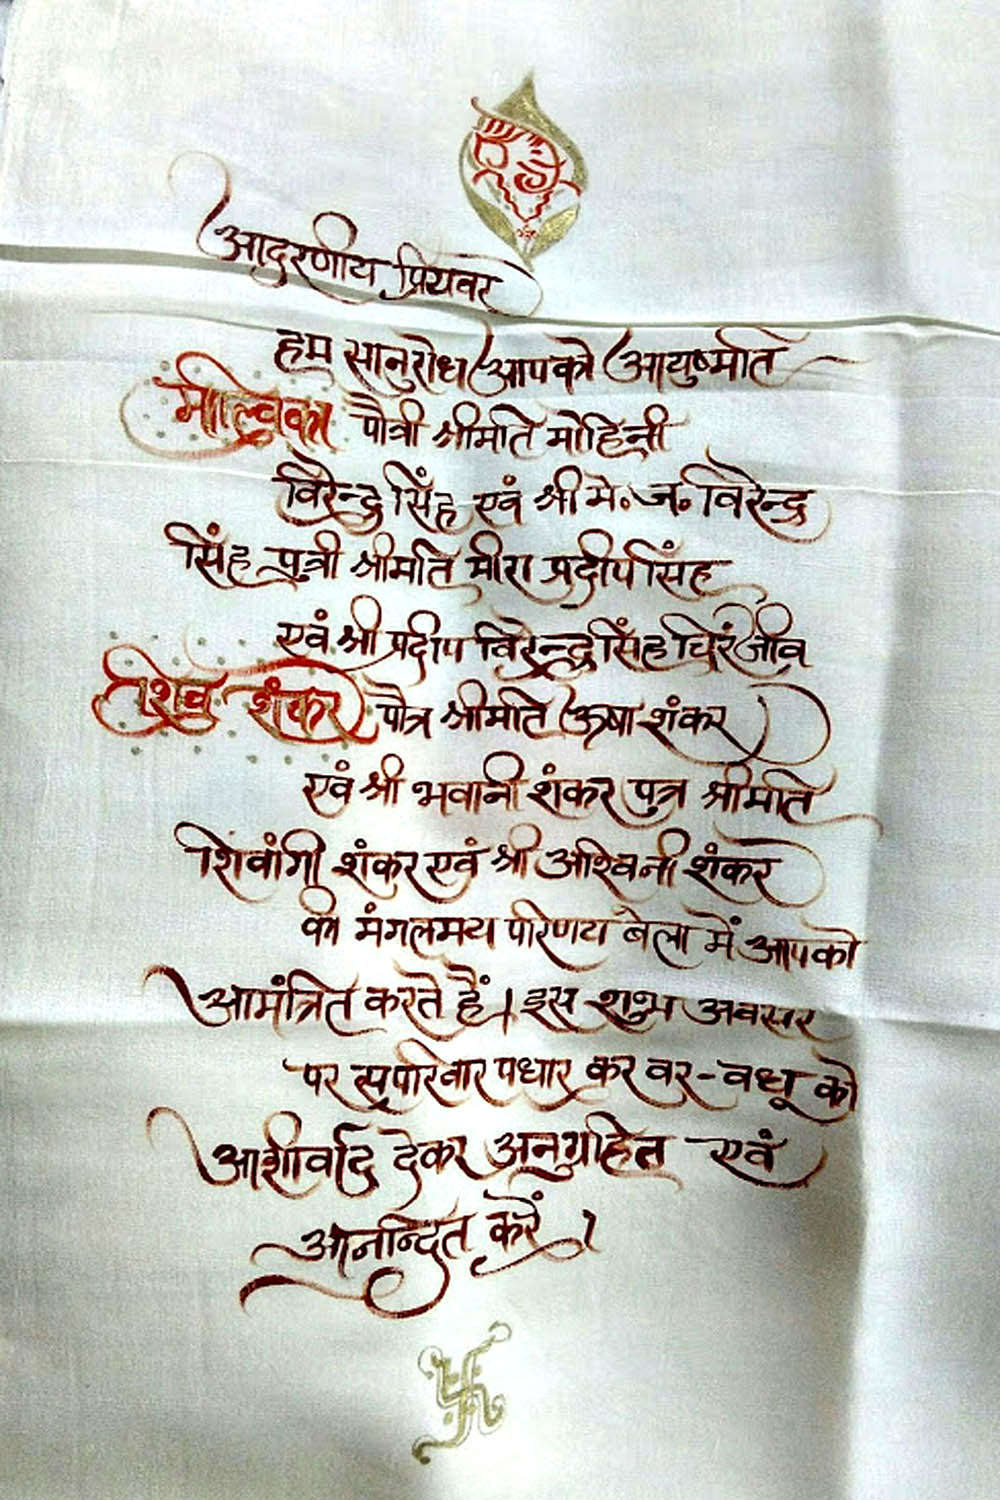 आदरणीय प्रियवर
हम सानुरोध आपको आयुष्मति
माल्विका पौत्री श्रीमति मोहिनी
विरेन्द्र सिंह एवं श्री मे. ज. विरेन्द्र
सिंह पुत्री श्रीमति मीरा प्रदीप सिंह
एवं श्री प्रदीप विरेन्द्र सिंह चिरंजीव
शिव शंकर पौत्र श्रीमति ऊषा शंकर
एवं श्री भवानी शंकर पुत्र श्रीमति
शिवांगी शंकर एवं श्री अश्विनी शंकर
की मंगलमय परिणय बेला में आपको
आमंत्रित करते हैं। इस शुभ अवसर
पर सपरिवार पधार कर वर-वधू को
आशीर्वाद देकर अनुग्रहित एवं
आनन्दित करें।